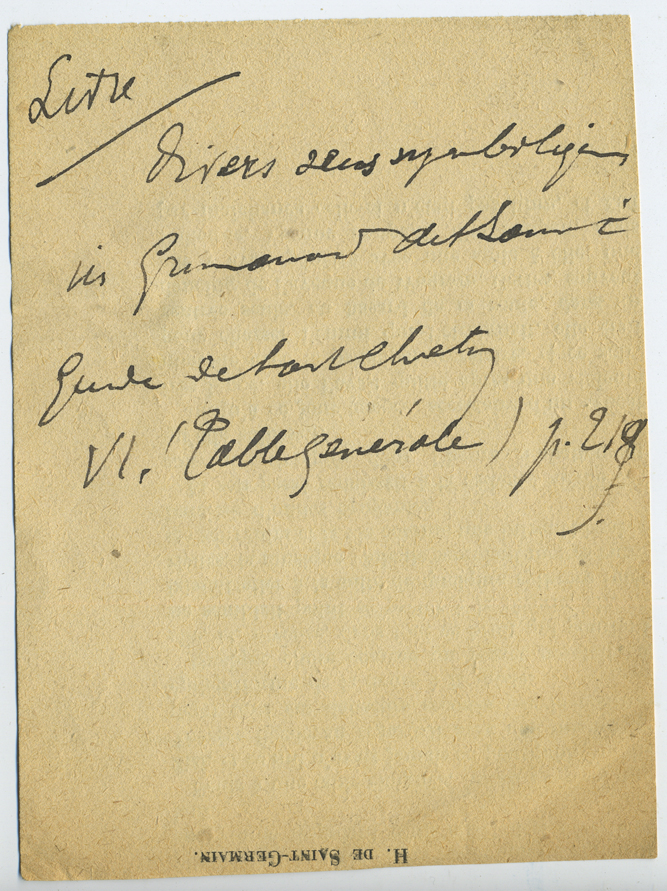 Divers sens symboliques
in Grimouard de St Laurent
Guide de l'art Chrétien
VI. (Table générale) p.
H. DE SAINT-GERMAIN.